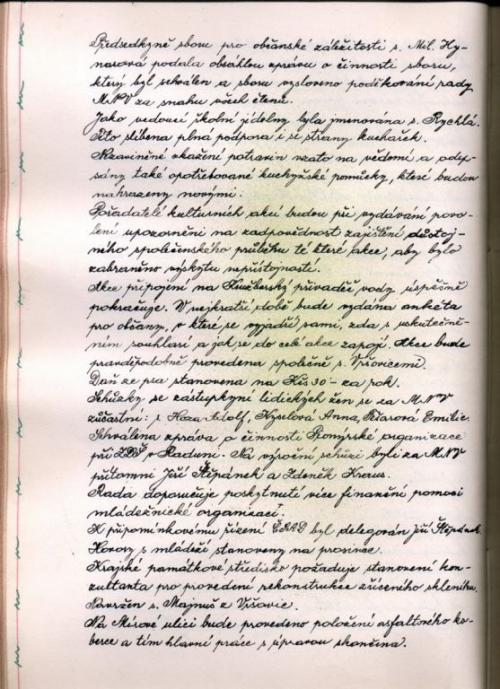 Předsedkyně sboru pro občanské záležitosti s. Mil. Hy-
narová podala obsáhlou zprávu o činnosti sboru,
který byl schválen a sboru vysloveno poděkování rady
MNV za snahu všech členů.
Jako vedoucí školní jídelny byla jmenována s. Rychlá.
Jí to slíbena plná podpora i se strany kuchařek.
Nezaviněné zkažení potravin vzato na vědomí a odep-
sány také opotřebované kuchyňské pomůcky, které budou
nahrazeny novými.
Pořadatelé kulturních akcí budou při vydávání povo-
lení upozorněni na zodpovědnost zajištění důstoj-
ného společenského průběhu té které akce, aby bylo
zabráněno výskytu nepřístojností.
Akce připojení na přivaděč vody úspěšně
pokračuje. V nejkratší době bude vydána anketa
pro občany, v které se vyjádří sami, zda s uskutečně-
ním souhlasí a jak se do celé akce zapojí. Akce bude
pravděpodobně provedena společně s Vršovicemi.
Daň ze psa stanovena na Kčs 30- za rok.
Schůzky se zástupkyní lidických žen se za MNV
zúčastní: s. Adolf, Kyselová Anna, Emilie.
Schválena zpráva o činnosti Pionýrské organizace
při ZDŠ v Raduni. Na výroční schůzi byli za MNV
přítomni Jiří Štěpánek a Zdeněk Kraus.
Rada doporučuje poskytnutí více finanční pomoci
mládežnické organizaci.
K připomínkovému řízení byl delegován Jiří Štěpánek.
Hovory s mládeží stanoveny na prosinec.
Krajské památkové středisko požaduje stanovení kon-
zultanta pro provedení rekonstrukce zříceného skleníku.
Navržen s. Majnuš z Vršovic.
Na Mírové ulici bude provedeno položení asfaltového ko-
berce a tím hlavní práce s úpravou skončena.